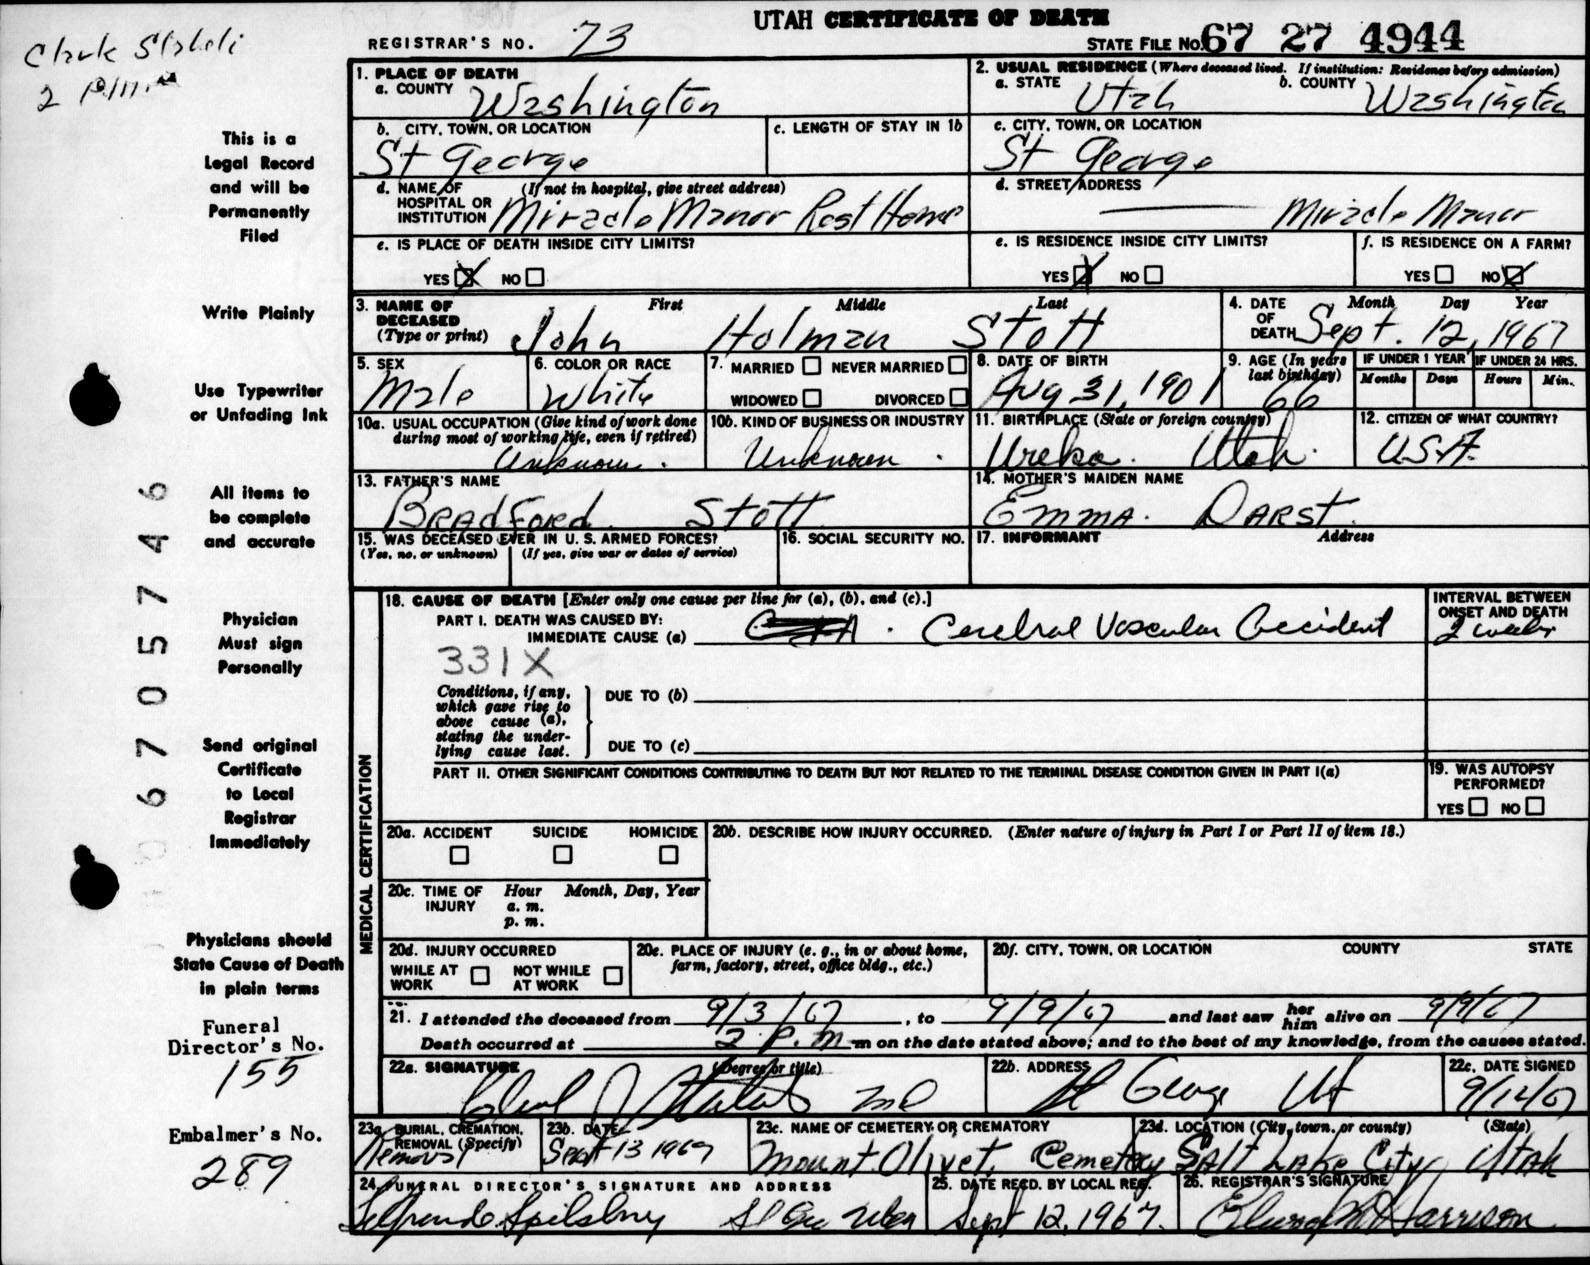 UTAH CERTIFICATE OF DEATH
REGISTRAR'S NO. 73
STATE FILE NO. 67 27 4944
2 P.M.
This is a
Legal Record
and will be
Permanently
Filed
Write Plainly
Use Typewriter
or Unfading Ink
All items to
be complete
and accurate
Physician
Must sign
Personally
Send original
Certificate
to Local
Registrar
Immediately
Physicians should
State Cause of Death
in plain terms
Funeral
Director's No.
155
Embalmer's No.
289
6705746
1. PLACE OF DEATH
a. COUNTY Washington
2. USUAL RESIDENCE (Where deceased lived. If institution: Residence before admission)
a. STATE Utah b. COUNTY Washington
b. CITY, TOWN, OR LOCATION
St George
c. LENGTH OF STAY IN 1b
c. CITY, TOWN, OR LOCATION
St George
d. NAME OF HOSPITAL OR INSTITUTION (If not in hospital, give street address)
Miracle Manor Rest Home
d. STREET ADDRESS
Miracle Manor
e. IS PLACE OF DEATH INSIDE CITY LIMITS?
YES X NO
e. IS RESIDENCE INSIDE CITY LIMITS?
YES X NO
f. IS RESIDENCE ON A FARM?
YES NO X
3. NAME OF DECEASED (Type or print) First Middle Last
John Holman Stott
4. DATE OF DEATH Month Day Year
Sept. 12, 1967
5. SEX
Male
6. COLOR OR RACE
White
7. MARRIED NEVER MARRIED
WIDOWED DIVORCED
8. DATE OF BIRTH
Aug 31, 1901
9. AGE (In years last birthday)
66
IF UNDER 1 YEAR IF UNDER 24 HRS.
Months Days Hours Min.
10a. USUAL OCCUPATION (Give kind of work done during most of working life, even if retired)
Unknown.
10b. KIND OF BUSINESS OR INDUSTRY
Unknown.
11. BIRTHPLACE (State or foreign country)
Ureka. Utah.
12. CITIZEN OF WHAT COUNTRY?
U.S.A.
13. FATHER'S NAME
Bradford Stott
14. MOTHER'S MAIDEN NAME
Emma. Darst.
15. WAS DECEASED EVER IN U. S. ARMED FORCES?
(Yes, no, or unknown) (If yes, give war or dates of service)
16. SOCIAL SECURITY NO.
17. INFORMANT Address
MEDICAL CERTIFICATION
18. CAUSE OF DEATH [Enter only one cause per line for (a), (b), and (c).]
PART I. DEATH WAS CAUSED BY:
IMMEDIATE CAUSE (a) Cerebral Vascular Accident
INTERVAL BETWEEN ONSET AND DEATH
2 weeks
331X
Conditions, if any, which gave rise to above cause (a), stating the underlying cause last.
DUE TO (b)
DUE TO (c)
PART II. OTHER SIGNIFICANT CONDITIONS CONTRIBUTING TO DEATH BUT NOT RELATED TO THE TERMINAL DISEASE CONDITION GIVEN IN PART I(a)
19. WAS AUTOPSY PERFORMED?
YES NO
20a. ACCIDENT SUICIDE HOMICIDE
20b. DESCRIBE HOW INJURY OCCURRED. (Enter nature of injury in Part I or Part II of item 18.)
20c. TIME OF INJURY Hour Month, Day, Year
a. m.
p. m.
20d. INJURY OCCURRED
WHILE AT WORK NOT WHILE AT WORK
20e. PLACE OF INJURY (e. g., in or about home, farm, factory, street, office bldg., etc.)
20f. CITY, TOWN, OR LOCATION COUNTY STATE
21. I attended the deceased from 9/3/67, to 9/9/67 and last saw her him alive on 9/9/67
Death occurred at 2 P.M. m on the date stated above; and to the best of my knowledge, from the causes stated.
22a. SIGNATURE (Degree or title)
MD
22b. ADDRESS
St George Ut
22c. DATE SIGNED
9/12/67
23a. BURIAL, CREMATION, REMOVAL (Specify)
Removal
23b. DATE
Sept 13 1967
23c. NAME OF CEMETERY OR CREMATORY
Mount Olivet Cemetery
23d. LOCATION (City, town, or county) (State)
Salt Lake City Utah
24. FUNERAL DIRECTOR'S SIGNATURE AND ADDRESS
Spilsbury
25. DATE RECD. BY LOCAL REG.
Sept 12, 1967.
26. REGISTRAR'S SIGNATURE
Harrison